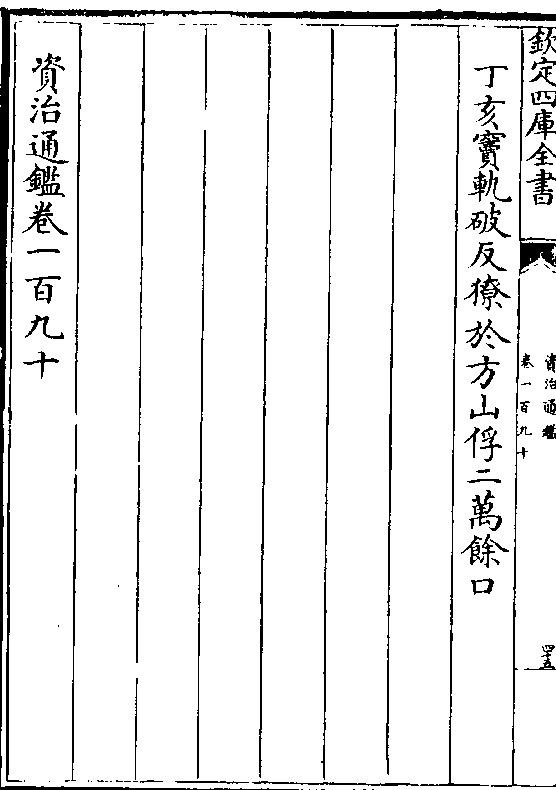 欽定四庫全書
資治通鑑
卷一百九十
四十五
丁亥竇軌破反獠於方山俘二萬餘口
資治通鑑卷一百九十